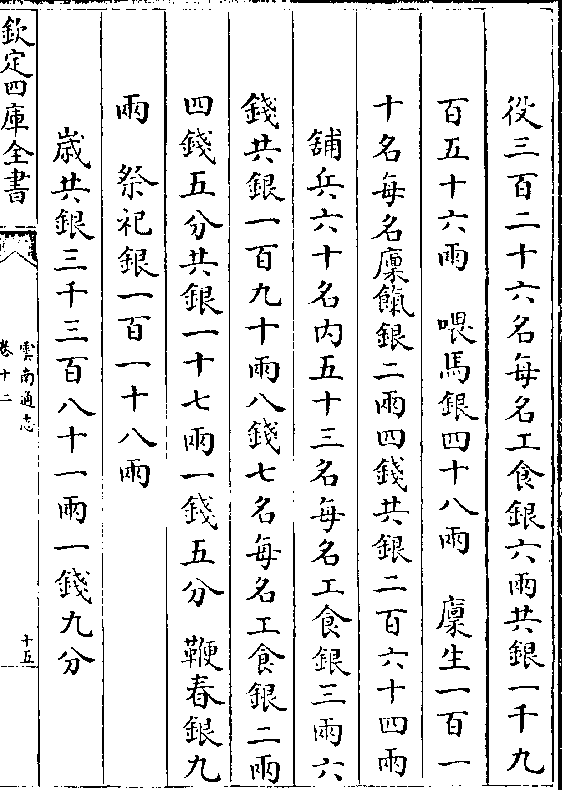 役三百二十六名每名工食銀六兩共銀一千九
百五十六兩　喂馬銀四十八兩　廩生一百一
十名每名廩餼銀二兩四錢共銀二百六十四兩
舖兵六十名内五十三名每名工食銀三兩六
錢共銀一百九十兩八錢七名每名工食銀二兩
四錢五分共銀一十七兩一錢五分　鞭春銀九
兩　祭祀銀一百一十八兩
歲共銀三千三百八十一兩一錢九分
欽定四庫全書
雲南通志
卷十二
十五